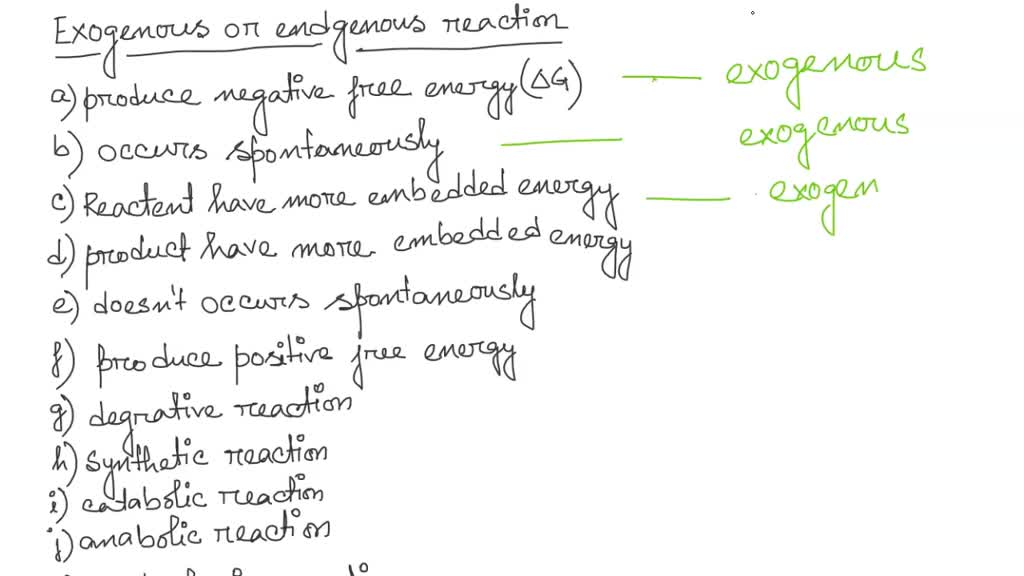 Exogenous or endgenous reaction
a) produce negative free energy (ΔG) — exogenous
b) occurs spontaneously — exogenous
c) Reactent have more embedded energy — exogen
d) product have more embedded energy
e) doesn't occurs spontaneously
f) produce positive free energy
g) degrative reaction
h) synthetic reaction
i) catabolic reaction
j) anabolic reaction